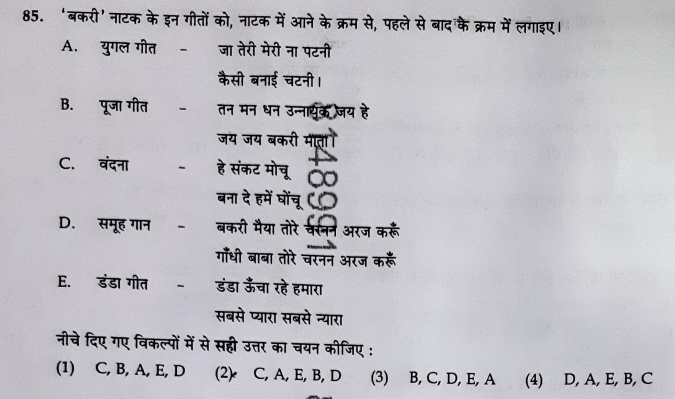 85. 'बकरी' नाटक के इन गीतों को, नाटक में आने के क्रम से, पहले से बाद के क्रम में लगाइए।
A. युगल गीत - जा तेरी मेरी ना पटनी
कैसी बनाई चटनी।
B. पूजा गीत - तन मन धन उन्नायक जय हे
जय जय बकरी माता।
C. वंदना - हे संकट मोचू
बना दे हमें घोंचू
D. समूह गान - बकरी मैया तोरे चरनन अरज करूँ
गाँधी बाबा तोरे चरनन अरज करूँ
E. डंडा गीत - डंडा ऊँचा रहे हमारा
सबसे प्यारा सबसे न्यारा
नीचे दिए गए विकल्पों में से सही उत्तर का चयन कीजिए :
(1) C, B, A, E, D (2) C, A, E, B, D (3) B, C, D, E, A (4) D, A, E, B, C